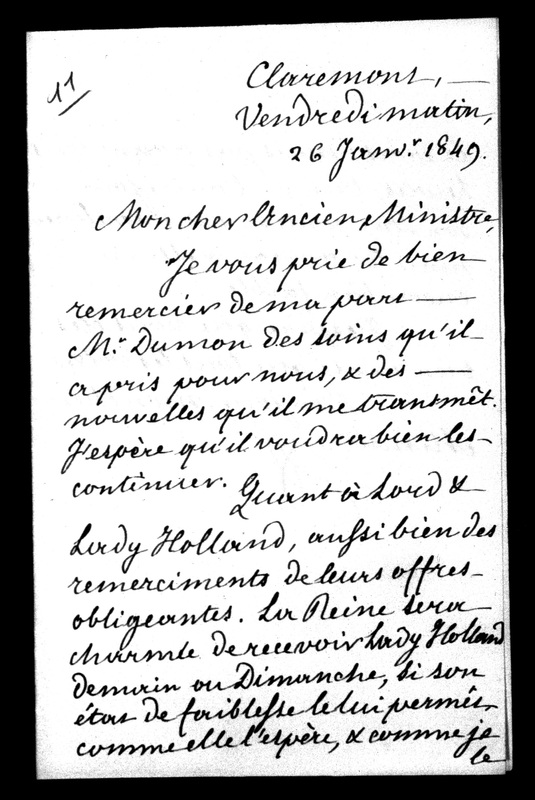 11
Claremont, —
Vendredi matin,
26 Janv.r 1849.
Mon cher Ancien Ministre,
Je vous prie de bien
remercier de ma part —
Mr. Dumon des soins qu'il
a pris pour nous, & des —
nouvelles qu'il me transmêt.
J'espère qu'il voudra bien les
continuer.
Quant à Lord &
Lady Holland, aussi bien des
remerciments de leurs offres
obligeantes. La Reine sera
charmée de recevoir Lady Holland
demain ou Dimanche, si son
état de faiblesse le lui permêt,
comme elle l'espère, & comme je
le